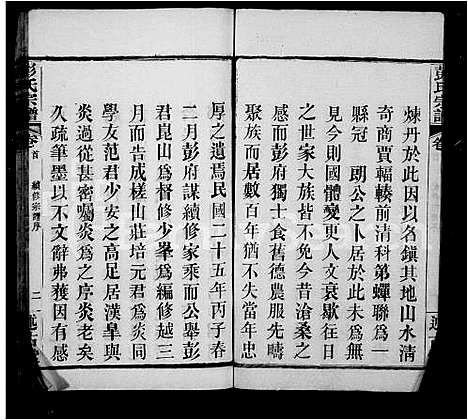 煉丹於此因以名鎮其地山水清
奇商賈輻輳前清科第蟬聯為一
縣冠　朗公之卜居於此未為無
見今則國體變更人文衰歇往日
之世家大族皆不免今昔滄桑之
感而彭府獨士食舊德農服先疇
聚族而居數百年猶不失當年忠
厚之遺焉民國二十五年丙子春
二月彭府謀續修家乘而公舉彭
君崑山為督修少峯為編修越三
月而告成槎山莊培元君為炎同
學友范君少安之高足居漢阜與
炎過從甚密囑炎為之序炎老矣
久疏筆墨以不文辭弗獲因有感
彭氏宗譜
卷首
續修宗譜序
二
彭氏宗譜